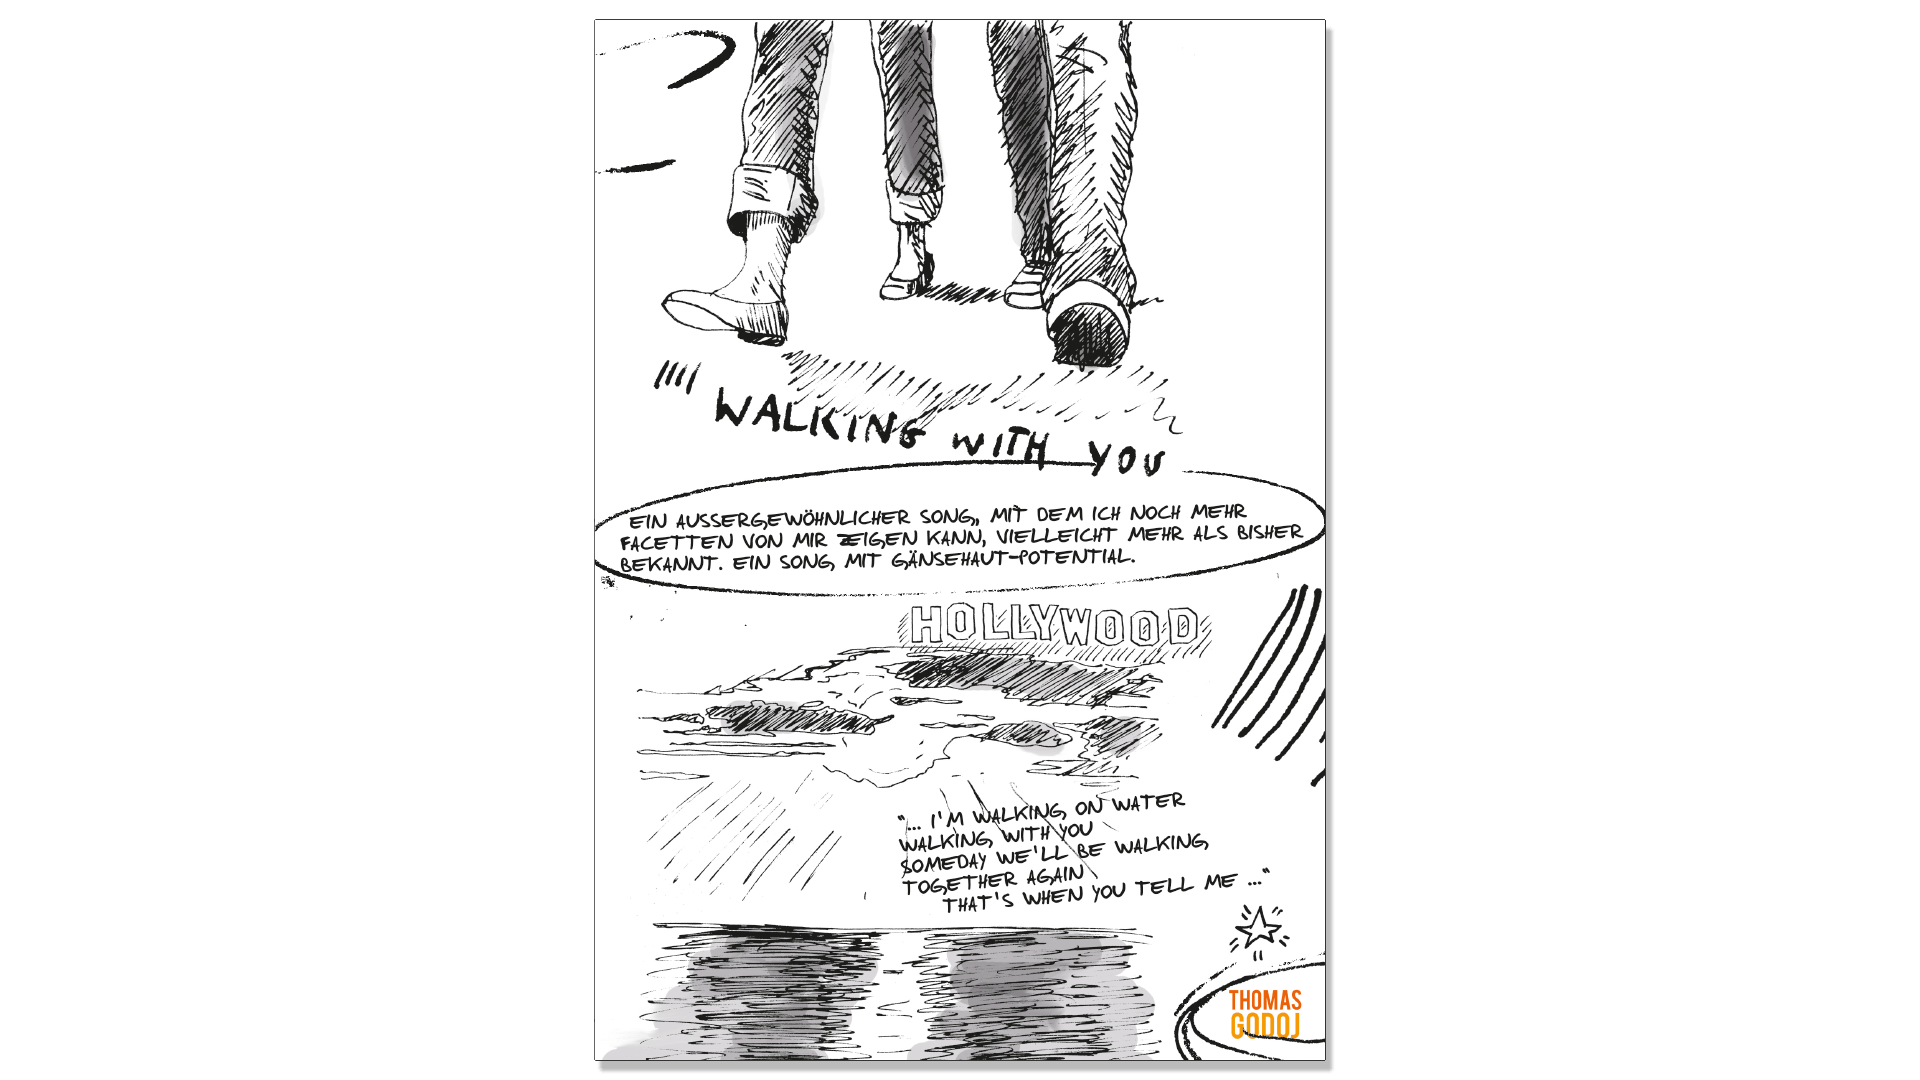 WALKING WITH YOU
EIN AUSSERGEWÖHNLICHER SONG, MIT DEM ICH NOCH MEHR
FACETTEN VON MIR ZEIGEN KANN, VIELLEICHT MEHR ALS BISHER
BEKANNT. EIN SONG MIT GÄNSEHAUT-POTENTIAL.
HOLLYWOOD
"... I'M WALKING ON WATER
WALKING WITH YOU
SOMEDAY WE'LL BE WALKING
TOGETHER AGAIN
THAT'S WHEN YOU TELL ME ..."
THOMAS
GODOJ